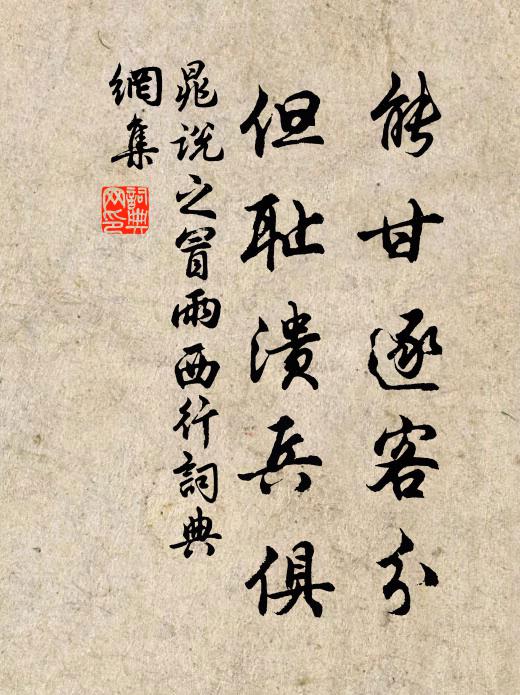 能甘逐客分
但耻潰兵俱
晁說之冒雨西行詞典
網集
詞典網印